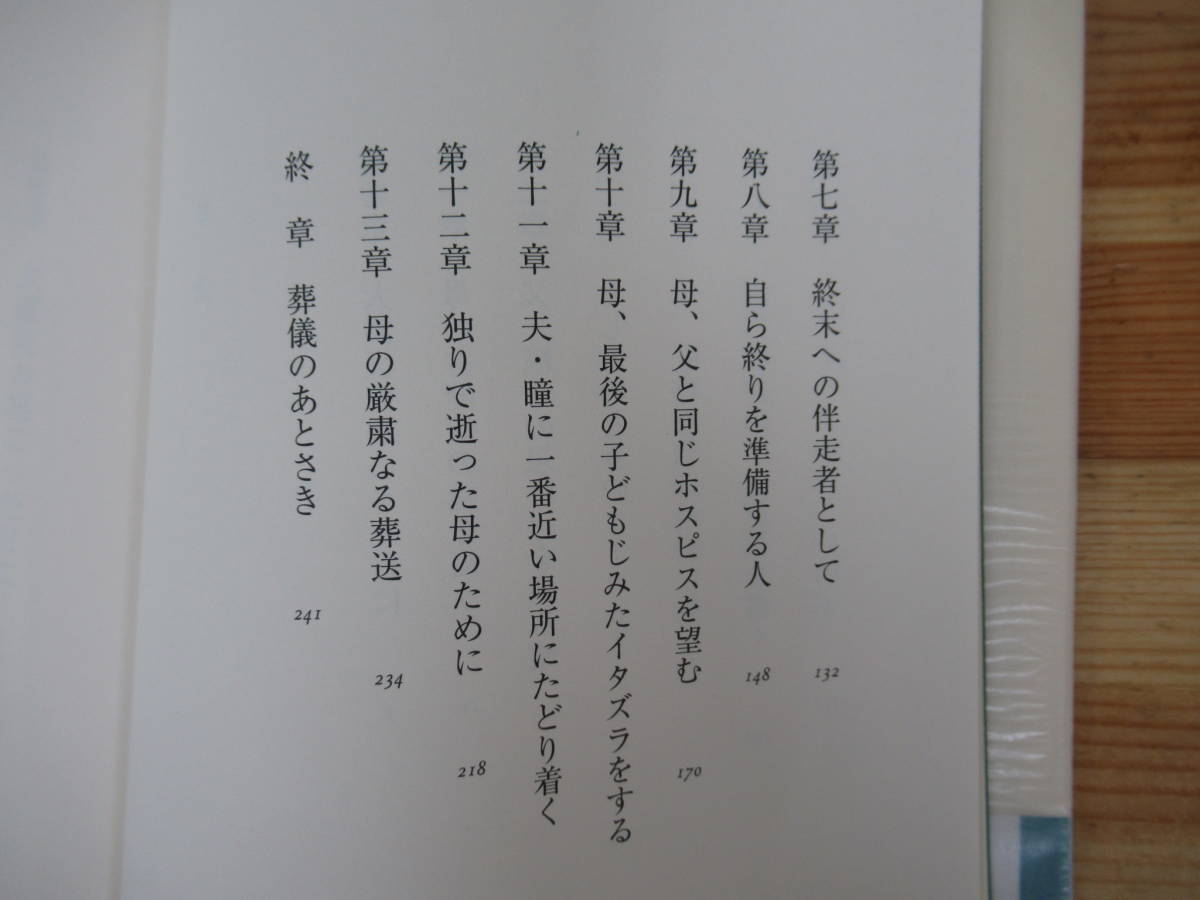 第七章　終末への伴走者として　132
第八章　自ら終りを準備する人　148
第九章　母、父と同じホスピスを望む　170
第十章　母、最後の子どもじみたイタズラをする
第十一章　夫・瞳に一番近い場所にたどり着く
第十二章　独りで逝った母のために　218
第十三章　母の厳粛なる葬送　234
終　章　葬儀のあとさき　241